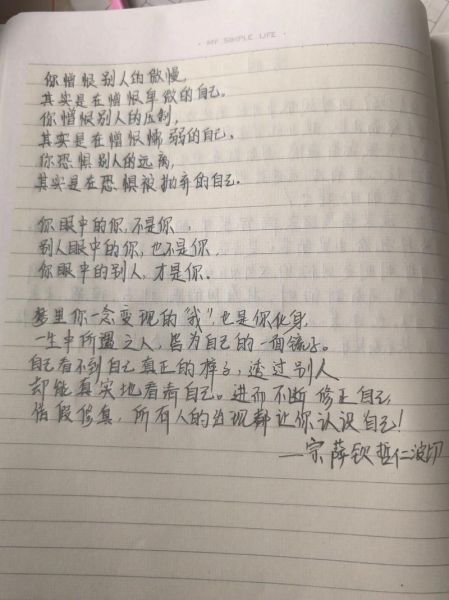 · MY SIMPLE LIFE ·
你憎恨别人的傲慢,
其实是在憎恨卑微的自己。
你憎恨别人的压制,
其实是在憎恨懦弱的自己。
你恐惧别人的远离,
其实是在恐惧被抛弃的自己.
你眼中的你,不是你.
别人眼中的你,也不是你.
你眼中的别人,才是你.
梦里你一念变现的"我",也是你化身,
一生中所遇之人,皆为自己的一面镜子。
自己看不到自己真正的样子,透过别人
却能真实地看看自己。进而不断修正自己,
借假修真,所有人的出现都让你认识自己!
—宗萨钦哲仁波切